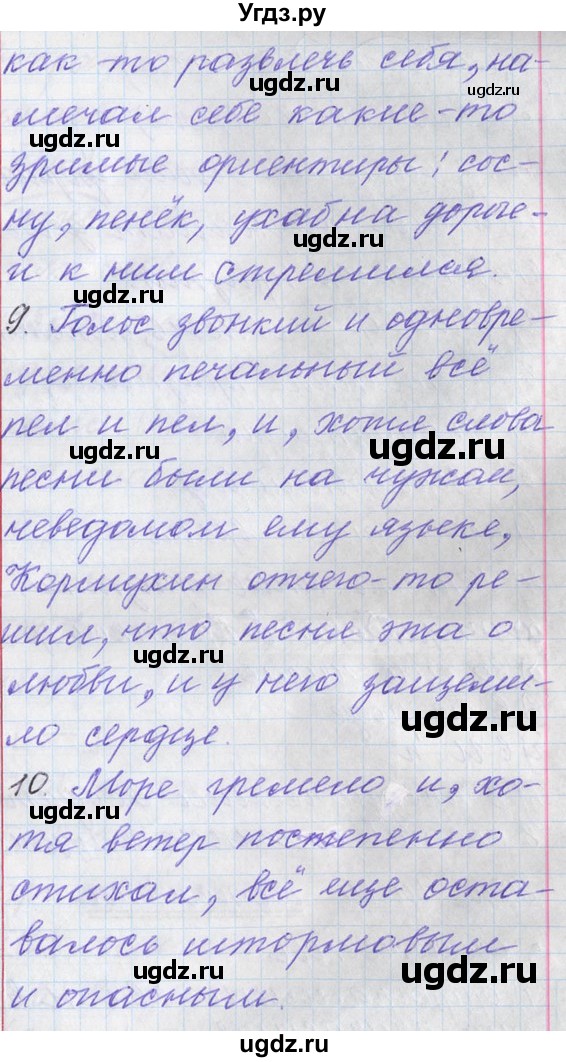 Угдз.ру
как-то развлечь себя, на-
мечал себе какие-то
зримые ориентиры: сос-
ну, пенёк, ухаб на дороге-
и к ним стремился.
9. Голос звонкий и одновре-
менно печальный всё
пел и пел, и, хотя слова
песни были на чужом,
неведомом ему языке,
Кормухин отчего-то ре-
шил, что песня эта о
любви, и у него защеми-
ло сердце.
10. Море гремело и, хо-
тя ветер постепенно
стихал, всё еще оста-
валось штормовым
и опасным.
ugdz.ru
ugdz.ru
ugdz.ru
ugdz.ru
ugdz.ru
ugdz.ru
ugdz.ru
ugdz.ru
ugdz.ru
ugdz.ru
ugdz.ru
ugdz.ru
ugdz.ru
ugdz.ru